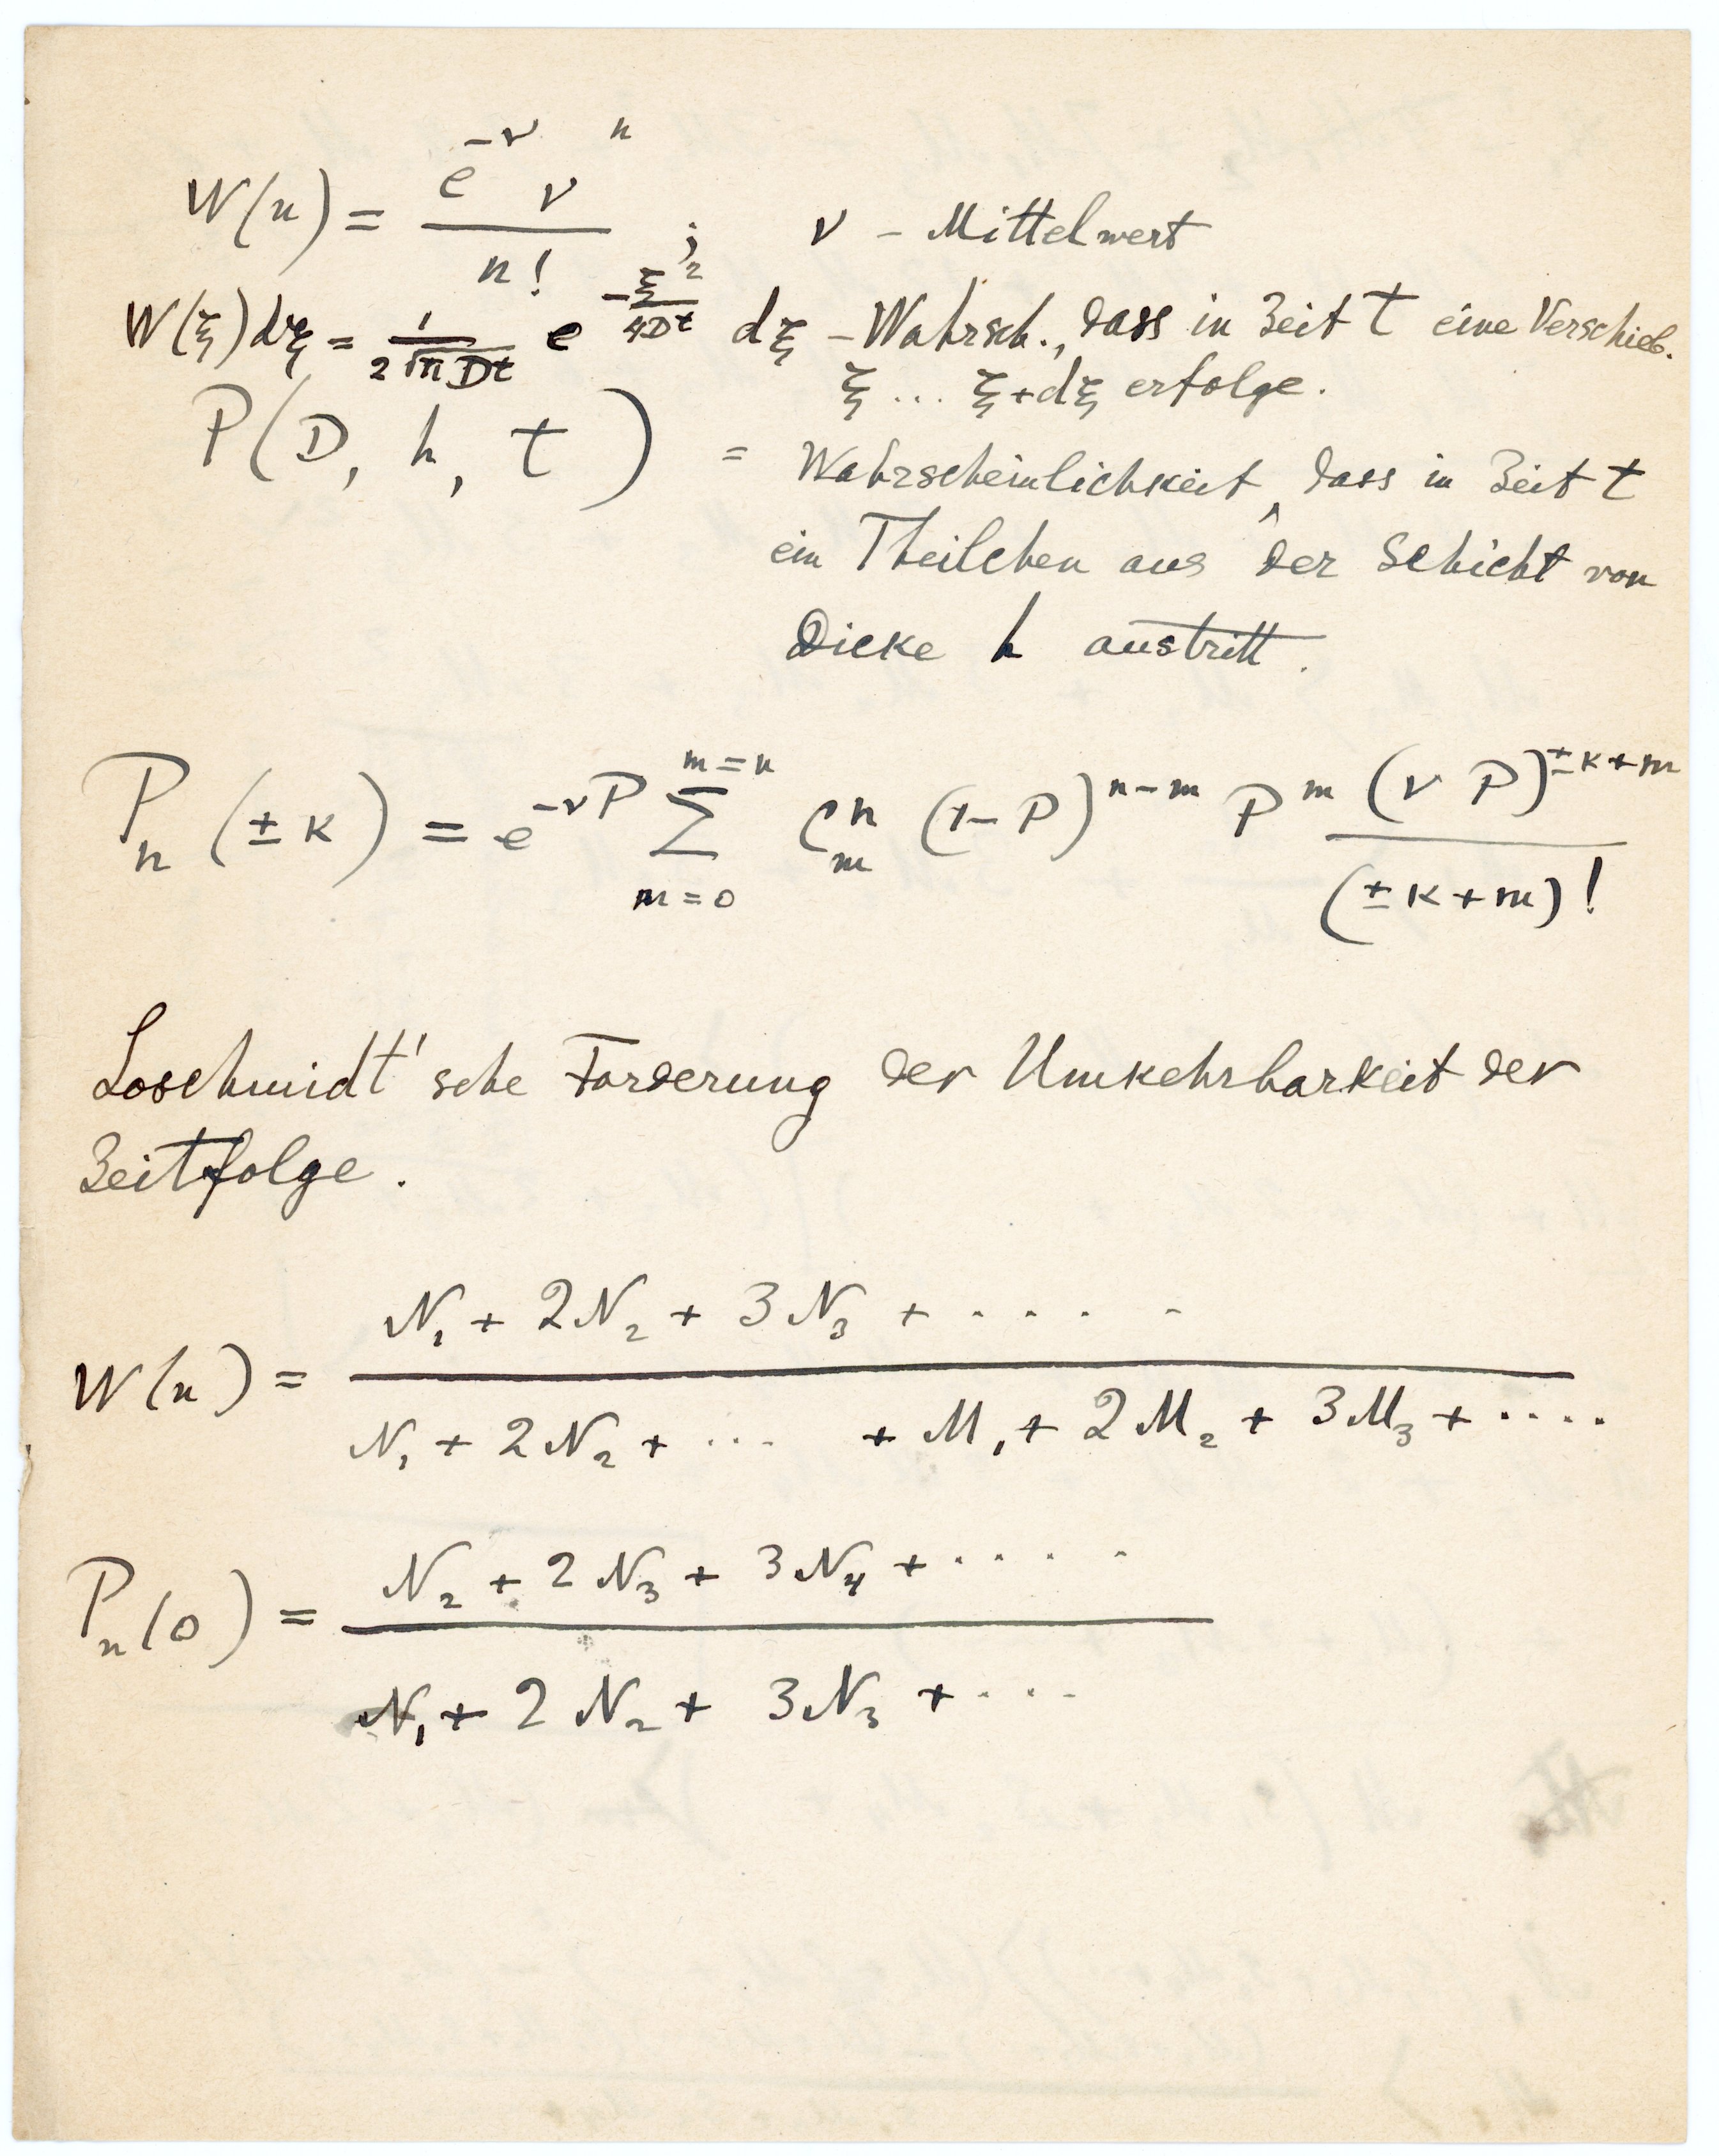 W(n) = e^{-ν} ν^n / n! ; ν – Mittelwert
W(ξ)dξ = 1/(2√(πDt)) e^{-ξ²/(4Dt)} dξ – Wahrsch., dass in Zeit t eine Verschieb.
ξ ... ξ+dξ erfolge.
P(D, h, t) = Wahrscheinlichkeit, dass in Zeit t
ein Theilchen aus der Schicht von
Dicke h austritt.
P_n(±k) = e^{-νP} Σ_{m=0}^{m=n} C_m^n (1-P)^{n-m} P^m (νP)^{±k+m} / (±k+m)!
Loschmidt'sche Forderung der Umkehrbarkeit der
Zeitfolge.
W(n) = (N₁ + 2N₂ + 3N₃ + .....) / (N₁ + 2N₂ + ... + M₁ + 2M₂ + 3M₃ + ....)
P_n(0) = (N₂ + 2N₃ + 3N₄ + .....) / (N₁ + 2N₂ + 3N₃ + ....)